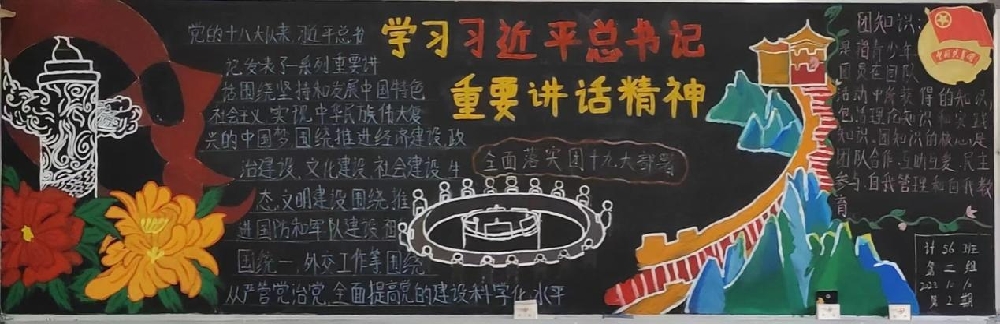 学习习近平总书记
重要讲话精神
党的十八大以来习近平总书
记发表了系列重要讲
话围绕坚持和发展中国特色
社会主义,实现中华民族伟大复
兴的中国梦围绕推进经济建设,政
治建设,文化建设,社会建设,生
态文明建设围绕推
进国防和军队建设祖
国统一,外交工作等围绕
从严管党治党,全面提高党的建设科学化水平
全面落实团十九大部署
团知识:
是指青少年
团员在团队
活动中所获得的知识,
包括理论知识和实践
知识,团知识的核心是
团队合作,互助互爱,民主
参与,自我管理和自我教
育
计 56 班
第二组
第 2 期